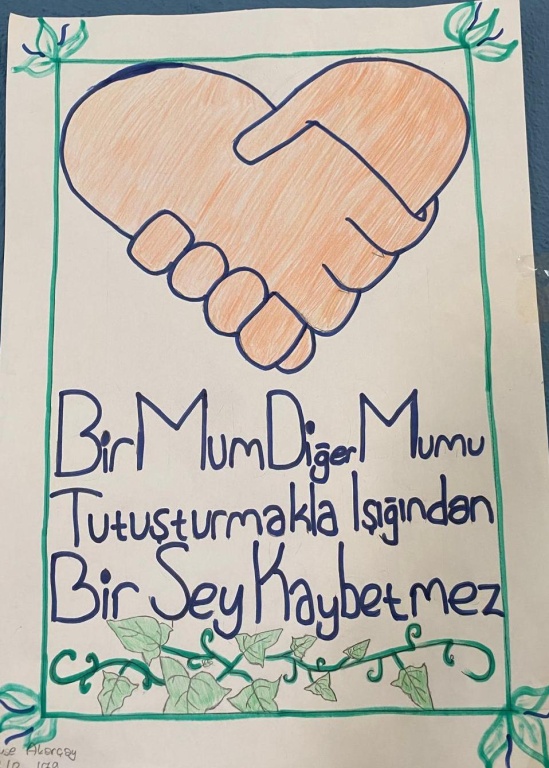 Bir Mum Diğer Mumu
Tutuşturmakla Işığından
Bir Sey Kaybetmez
Akarçay